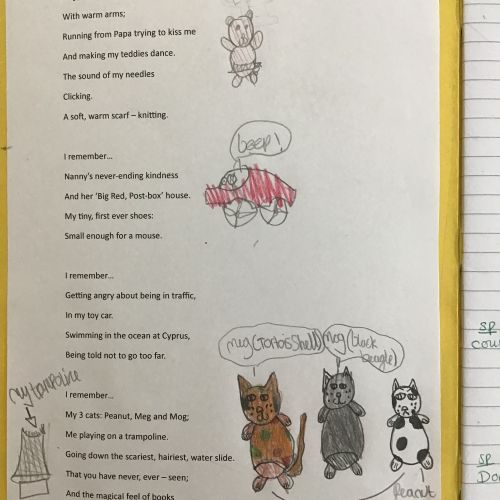 With warm arms;
Running from Papa trying to kiss me
And making my teddies dance.
The sound of my needles
Clicking.
A soft, warm scarf – knitting.
beep!
I remember…
Nanny's never-ending kindness
And her 'Big Red, Post-box' house.
My tiny, first ever shoes:
Small enough for a mouse.
I remember…
Getting angry about being in traffic,
In my toy car.
Swimming in the ocean at Cyprus,
Being told not to go too far.
meg (Tortois Shell)
mog (black beagle)
my trampoline
I remember…
My 3 cats: Peanut, Meg and Mog;
Me playing on a trampoline.
Going down the scariest, hairiest, water slide.
That you have never, ever – seen;
And the magical feel of books
Peanut
sp
cou
sp
Do